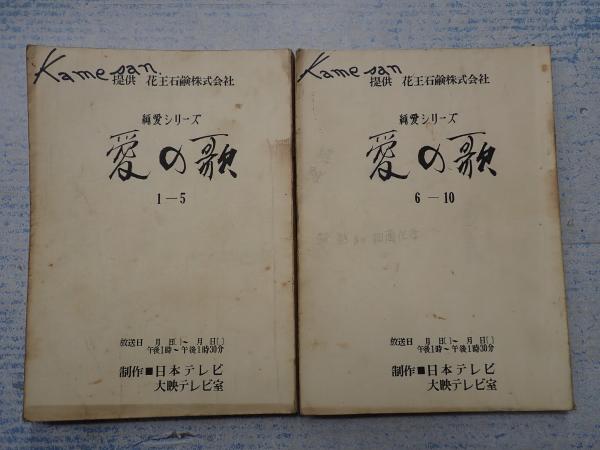 Kame san.
提供 花王石鹸株式会社
純愛シリーズ
愛の歌
1—5
放送日 月 日〔 〕~ 月 日〔 〕
午後1時~午後1時30分
制作■日本テレビ
大映テレビ室
Kame san
提供 花王石鹸株式会社
純愛シリーズ
愛の歌
6—10
放送日 月 日〔 〕~ 月 日〔 〕
午後1時~午後1時30分
制作■日本テレビ
大映テレビ室